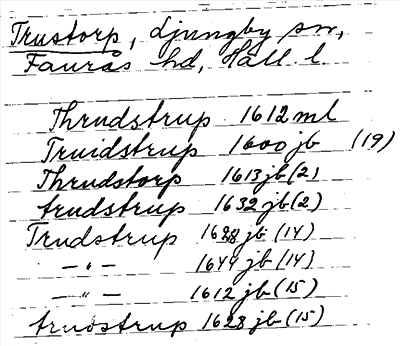 Trustorp, Ljungby sn,
Faurås hd, Hall. l.
Thrudstrup 1612 ml
Truidstrup 1600 jb (19)
Thrudstorp 1613 jb (2)
trudstrup 1632 jb (2)
Trudstrup 1628 jb (14)
—〃— 1644 jb (14)
—〃— 1612 jb (15)
truostrup 1628 jb (15)